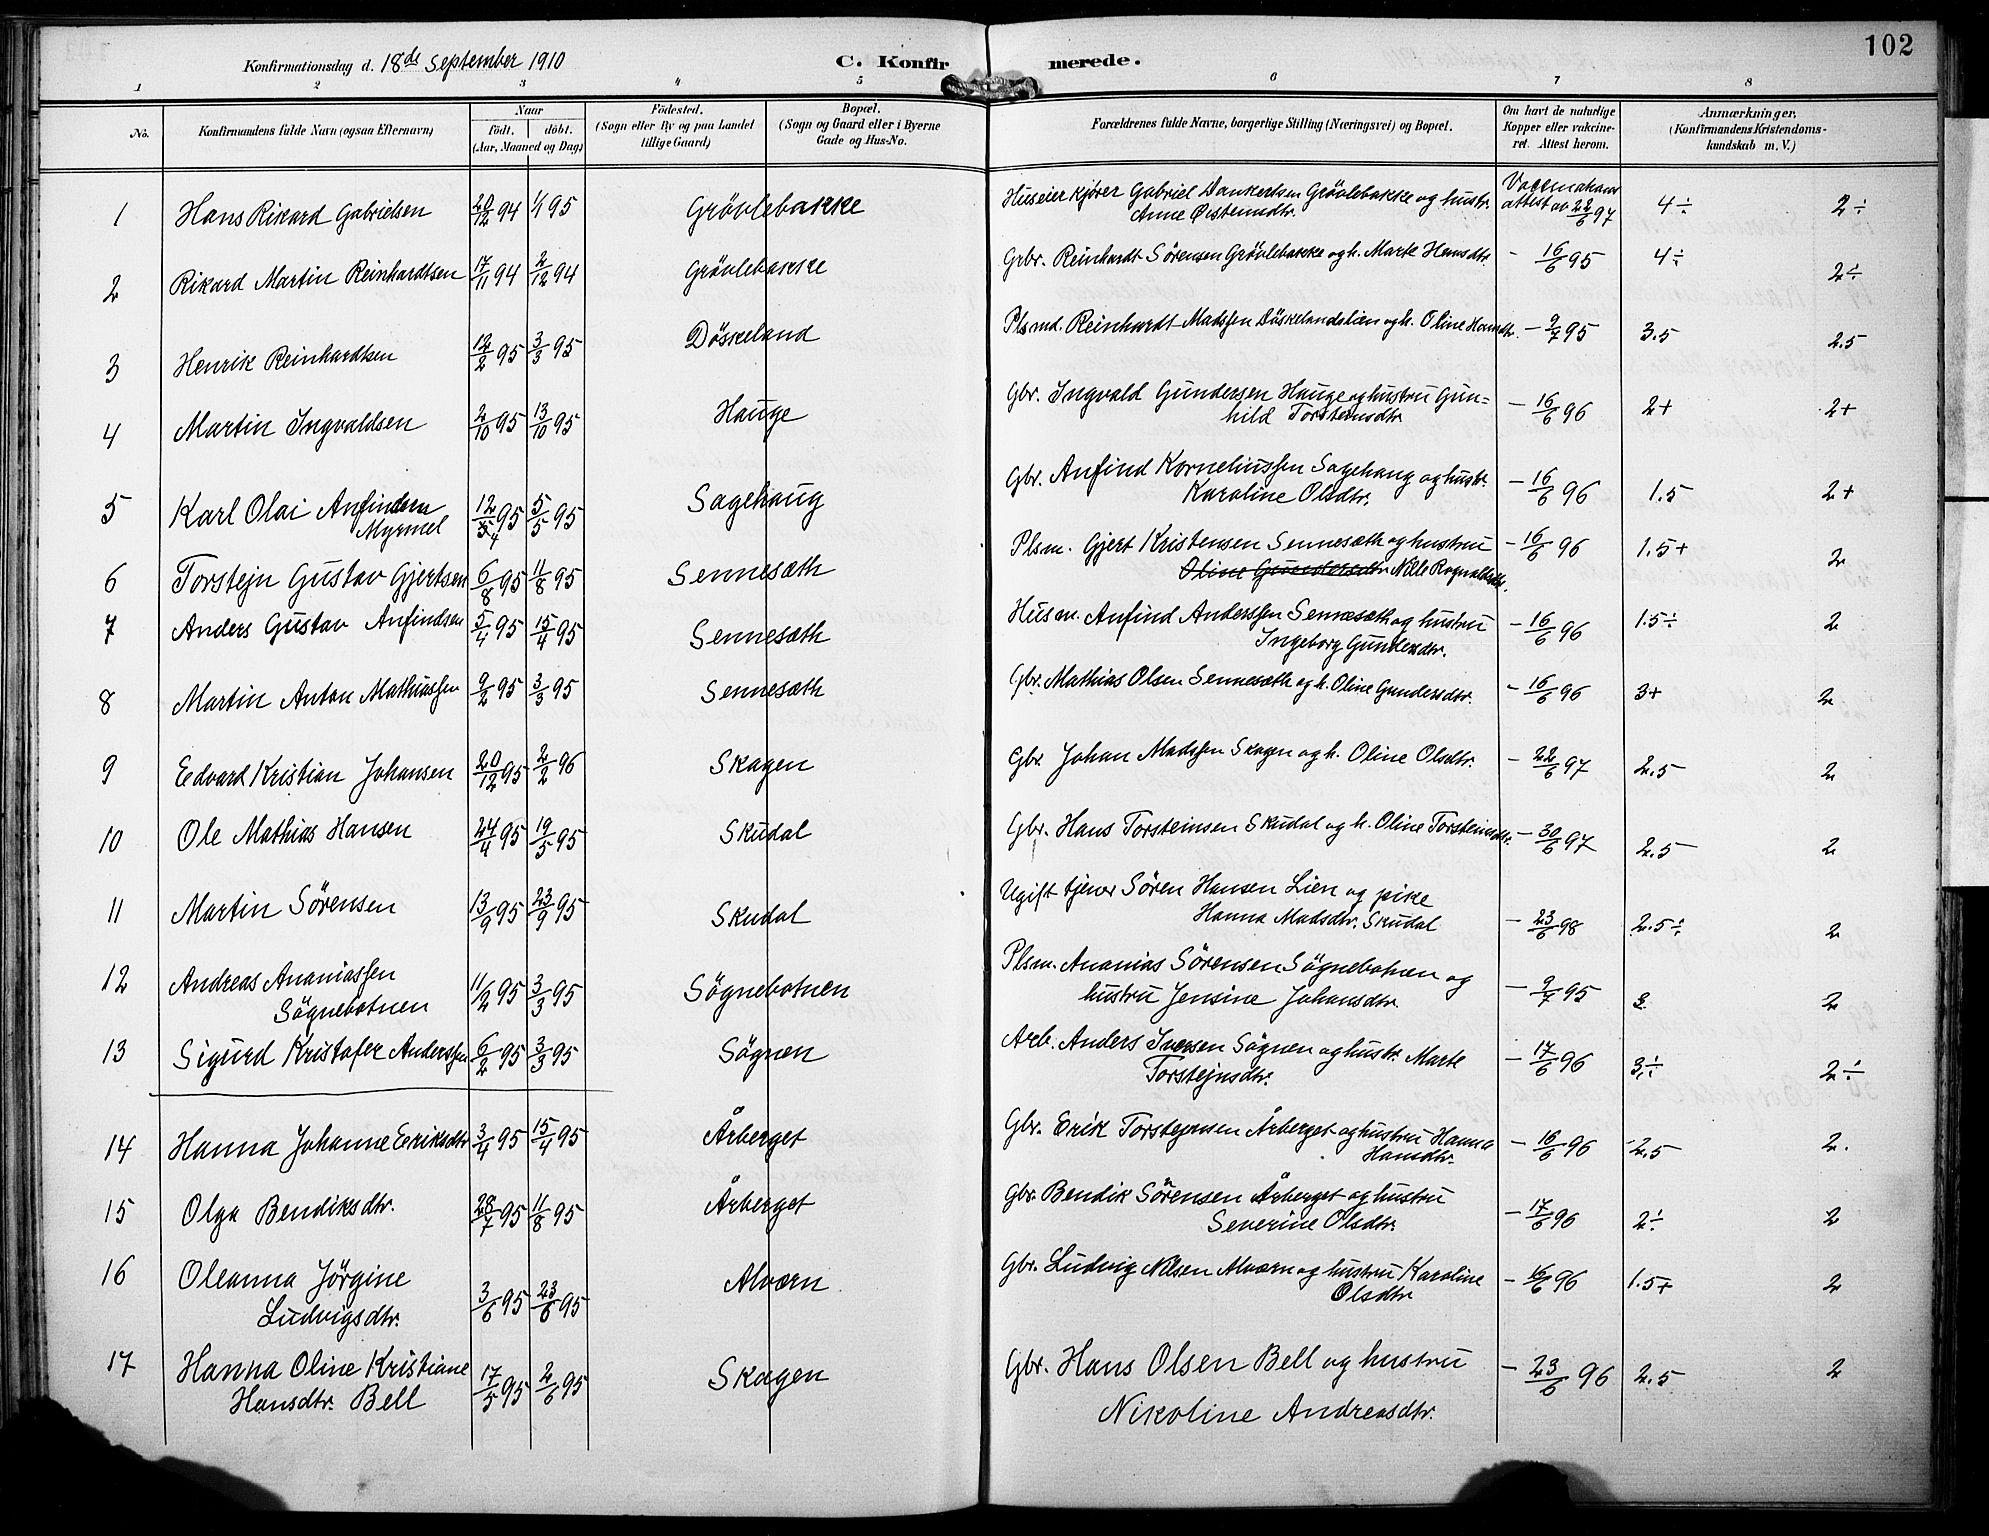 102
Konfirmationsdag d. 18de September 1910 C. Konfirmerede.
1 2 3 4 5 6 7 8
No. Konfirmandens fulde Navn (ogsaa Efternavn) Naar født. døbt. (Aar, Maaned og Dag) Fødested. (Sogn eller By og paa Landet tillige Gaard) Bopæl. (Sogn og Gaard eller i Byerne Gade og Hus-No. Forældrenes fulde Navne, borgerlige Stilling (Næringsvei) og Bopæl. Om havt de naturlige Kopper eller vakcineret. Attest herom. Anmærkninger. (Konfirmandens Kristendomskundskab m. V.)
1 Hans Rikard Gabrielsen 20/12 94 1/1 95 Grövlebakke Huseier kjører Gabriel Dankertsen Grövlebakke og hustr. Anne Øistensdtr. attest av 22/6 97 4÷ 2÷
2 Rikard Martin Reinhardtsen 17/11 94 2/12 94 Grövlebakke Grbr. Reinhardt Sörensen Grövlebakke og h. Marte Hansdtr. - 16/6 95 4÷ 2÷
3 Henrik Reinhardtsen 12/2 95 3/3 95 Döskeland Plsmd. Reinhardt Madssen Döskelandslien og h. Oline Hansdtr. - 9/7 95 3.5 2.5
4 Martin Ingvaldsen 2/10 95 13/10 95 Hauge Gbr. Ingvald Gundersen Hauge og hustru Gun=
hild Torsteinsdtr - 16/6 96 2+ 2+
5 Karl Olai Anfindsen Myrmel 12/4 95 5/5 95 Sagehaug Gbr. Anfind Korneliussen Sagehaug og hustr. Karoline Olsdtr. - 16/6 96 1.5 2+
6 Torstejn Gustav Gjertsen 6/8 95 11/8 95 Sennesæth Plsm. Gjert Kristensen Sennesæth og hustru Nille Rognaldsdtr. - 16/6 96 1.5+ 2
7 Anders Gustav Anfindsen 5/4 95 15/4 95 Sennesæth Husm. Anfind Anderssen Sennesæth og hustru Ingeborg Gundersdtr. - 16/6 96 1.5÷ 2
8 Martin Anton Mathiassen 9/2 95 3/3 95 Sennesæth Gbr. Mathias Olsen Sennesæth og h. Oline Gundersdtr. - 16/6 96 3+ 2
9 Edvard Kristian Johansen 20/12 95 2/2 96 Skagen Gbr. Johan Madssen Skagen og h. Oline Olsdtr. - 22/6 97 2.5 2
10 Ole Mathias Hansen 24/4 95 19/5 95 Skudal Gbr. Hans Torsteinsen Skudal og h. Oline Torsteinsdtr. - 30/6 97 2.5 2
11 Martin Sörensen 13/9 95 23/9 95 Skudal Ugift tjener Sören Hansen Lien og pike Hanna Madsdtr. Skudal - 23/6 98 2.5÷ 2
12 Andreas Ananiassen Sögnebotnen 11/2 95 3/3 95 Sögnebotnen Plsm. Ananias Sörensen Sögnebotnen og hustru Jensine Johansdtr. - 9/7 95 3 2
13 Sigurd Kristofer Anderssen 6/2 95 3/3 95 Sögnen Arb. Anders Iversen Sögnen og hustr. Marte Torstejnsdtr. - 17/6 96 3÷ 2÷
14 Hanna Johanne Eeriksdtr 3/4 95 15/4 95 Årberget Gbr. Erik Torstejnsen Årberget og hustru Hanna Hansdtr. - 16/6 96 2.5 2.
15 Olga Bendiksdtr. 28/7 95 11/8 95 Årberget Gbr. Bendik Sörensen Årberget og hustru Severine Olsdtr. - 17/6 96 2÷ 2
16 Oleanna Jörgine Ludvigsdtr. 3/6 95 23/6 95 Alværn Gbr. Ludvig Nilsen Alværn og hustru Karoline Olsdtr - 16/6 96 1.5+ 2
17 Hanna Oline Kristiane Hansdtr. Bell 17/5 95 2/6 95 Skagen Gbr. Hans Olsen Bell og hustru Nikoline Andreasdtr. - 23/6 96 2.5 2